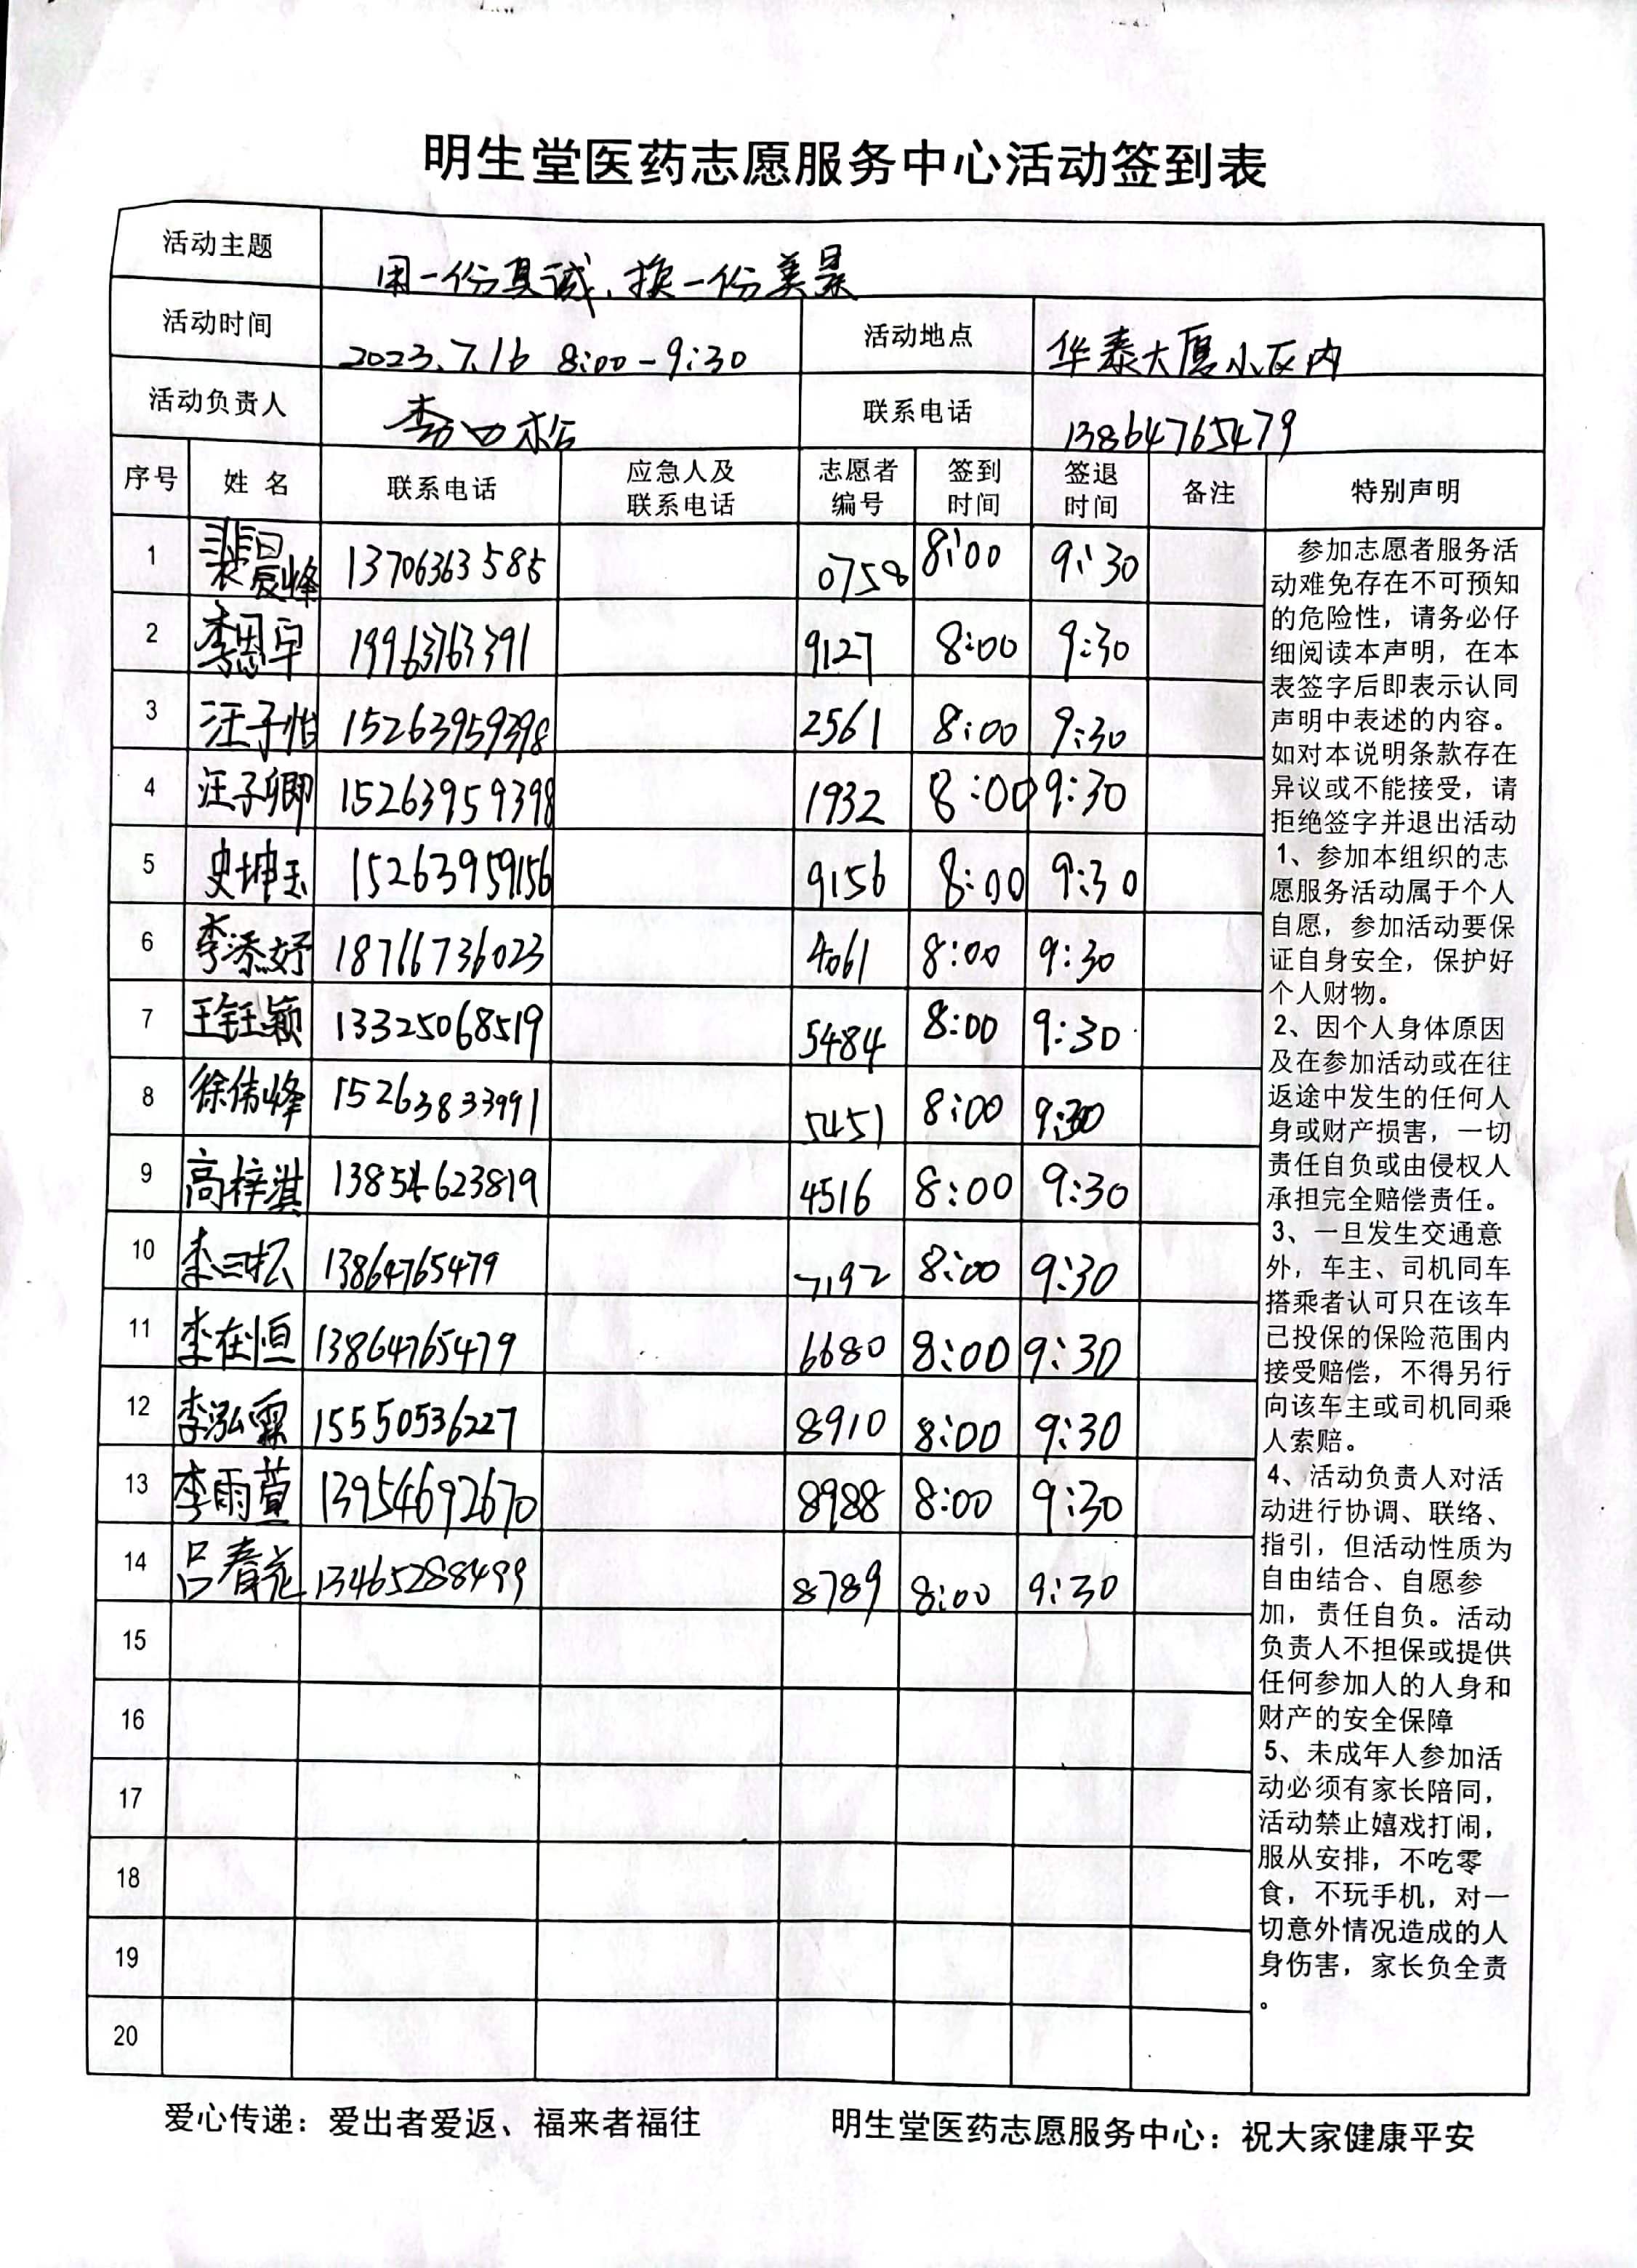 明生堂医药志愿服务中心活动签到表
活动主题 用一份真诚、换一份美景
活动时间 2023.7.16 8:00-9:30 活动地点 华泰大厦小区内
活动负责人 李四松 联系电话 13864765479
序号 姓名 联系电话 应急人及联系电话 志愿者编号 签到时间 签退时间 备注 特别声明
1 裴晨峰 13706363585 0758 8:00 9:30
2 李恩宇 19963763391 9127 8:00 9:30
3 汪子怡 15263959398 2561 8:00 9:30
4 汪子卿 15263959398 1932 8:00 9:30
5 史坤玉 15263959156 9156 8:00 9:30
6 李添妤 18766736023 4061 8:00 9:30
7 王钰颖 13325068519 5484 8:00 9:30
8 徐伟峰 15263833991 5451 8:00 9:30
9 高梓淇 13854623819 4516 8:00 9:30
10 李四松 13864765479 7192 8:00 9:30
11 李在恒 13864765479 6680 8:00 9:30
12 李泓霖 15550536227 8910 8:00 9:30
13 李雨萱 13954692670 8988 8:00 9:30
14 吕春花 13465288499 8789 8:00 9:30
15
16
17
18
19
20
参加志愿者服务活
动难免存在不可预知
的危险性，请务必仔
细阅读本声明，在本
表签字后即表示认同
声明中表述的内容。
如对本说明条款存在
异议或不能接受，请
拒绝签字并退出活动
1、参加本组织的志
愿服务活动属于个人
自愿，参加活动要保
证自身安全，保护好
个人财物。
2、因个人身体原因
及在参加活动或在往
返途中发生的任何人
身或财产损害，一切
责任自负或由侵权人
承担完全赔偿责任。
3、一旦发生交通意
外，车主、司机同车
搭乘者认可只在该车
已投保的保险范围内
接受赔偿，不得另行
向该车主或司机同乘
人索赔。
4、活动负责人对活
动进行协调、联络、
指引，但活动性质为
自由结合、自愿参
加，责任自负。活动
负责人不担保或提供
任何参加人的人身和
财产的安全保障
5、未成年人参加活
动必须有家长陪同，
活动禁止嬉戏打闹，
服从安排，不吃零
食，不玩手机，对一
切意外情况造成的人
身伤害，家长负全责
。
爱心传递：爱出者爱返、福来者福往 明生堂医药志愿服务中心：祝大家健康平安